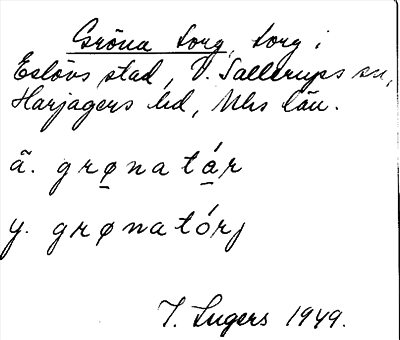 Gröna torg, torg i
Eslövs stad, V. Sallerups sn,
Harjagers hd, Mhs län.
ä. grø̱natá̱r
y. grønatórj
I. Ingers 1949.